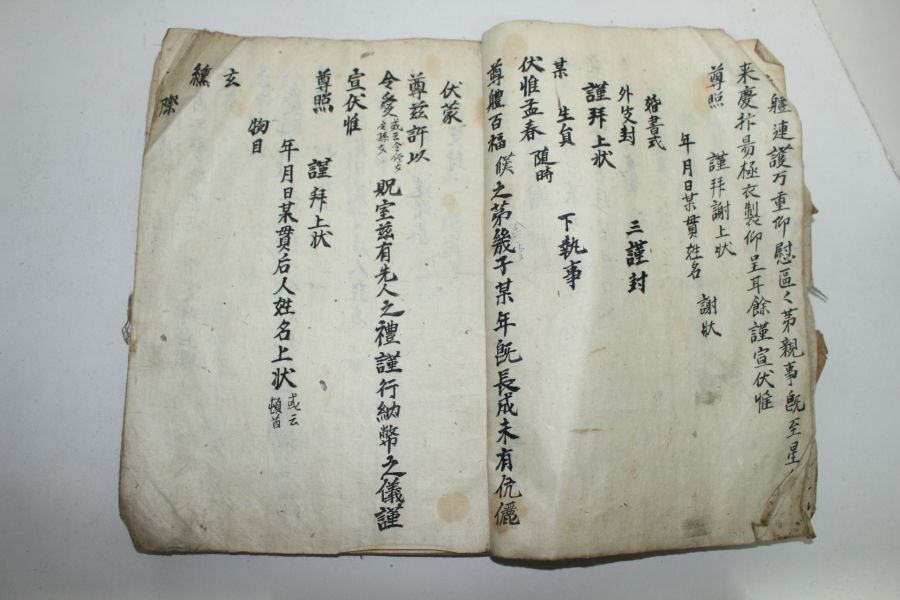 疆連護万重仰慰區々第親事旣至星
来慶抃曷極衣製仰呈耳餘謹宣伏惟
尊照 謹拜謝上狀
年月日某貫姓名 謝狀
婚書式
外皮封 三謹封
謹拜上狀
某 生員 下執事
伏惟孟春 随時
尊體百福 僕之第幾子某年旣長成未有伉儷
伏蒙
尊玆許以
令愛 或云令 令孫女 貺室玆有先人之禮謹行納幣之儀謹
宣伏惟
尊照 謹拜上狀
年月日某貫后人姓名上狀 或云頓首
物目
玄
纁
際